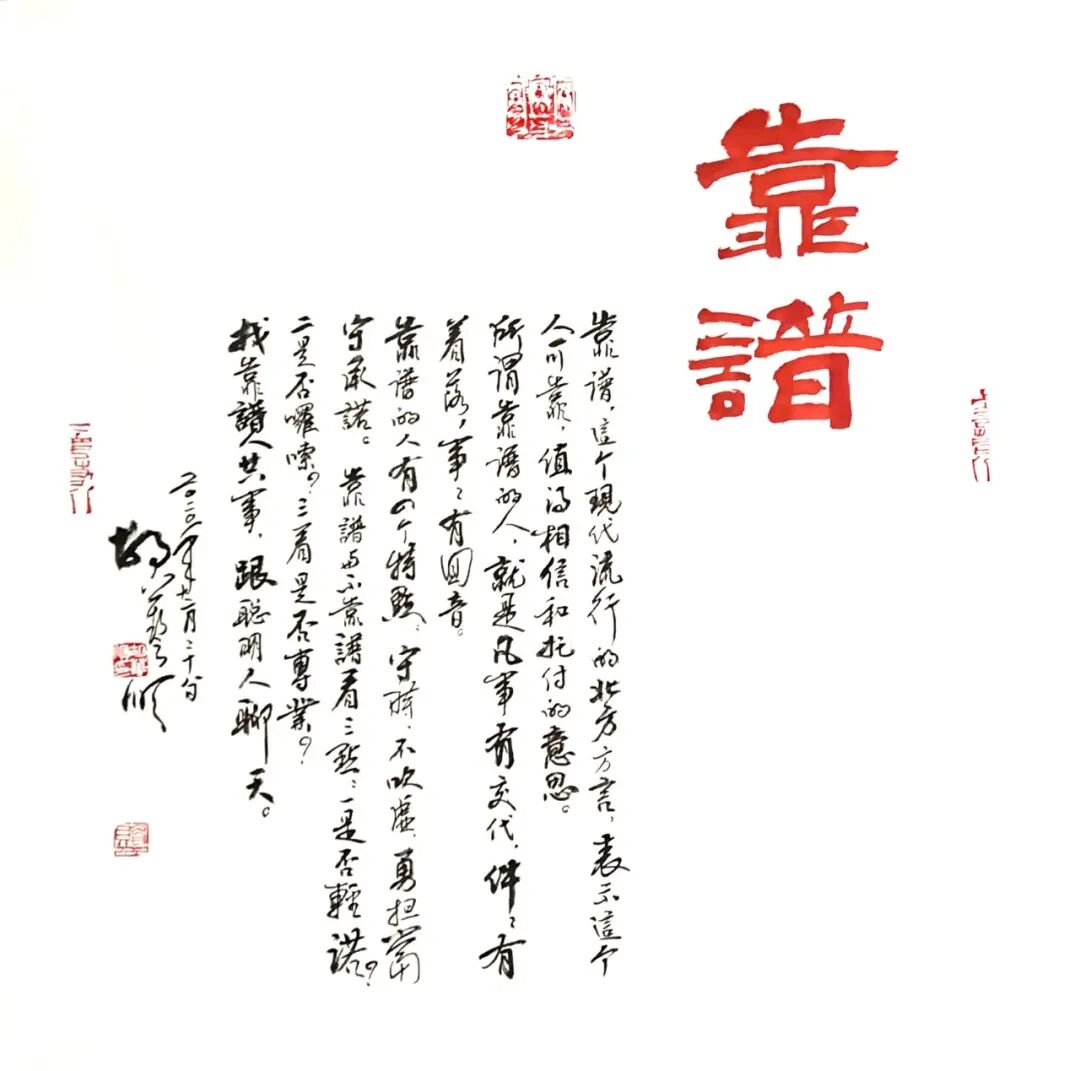 靠譜
靠譜，這个現代流行的北方方言，表示這个
人可靠，值得相信和托付的意思。
所謂靠譜的人，就是凡事有交代，件々有
着落，事々有回音。
靠譜的人有四个特點：守時，不吹虛，勇担當
守承諾。靠譜与不靠譜看三點：一是否輕諾？
二是否囉嗦？三看是否專業？
找靠譜人共事，跟聪明人聊天。